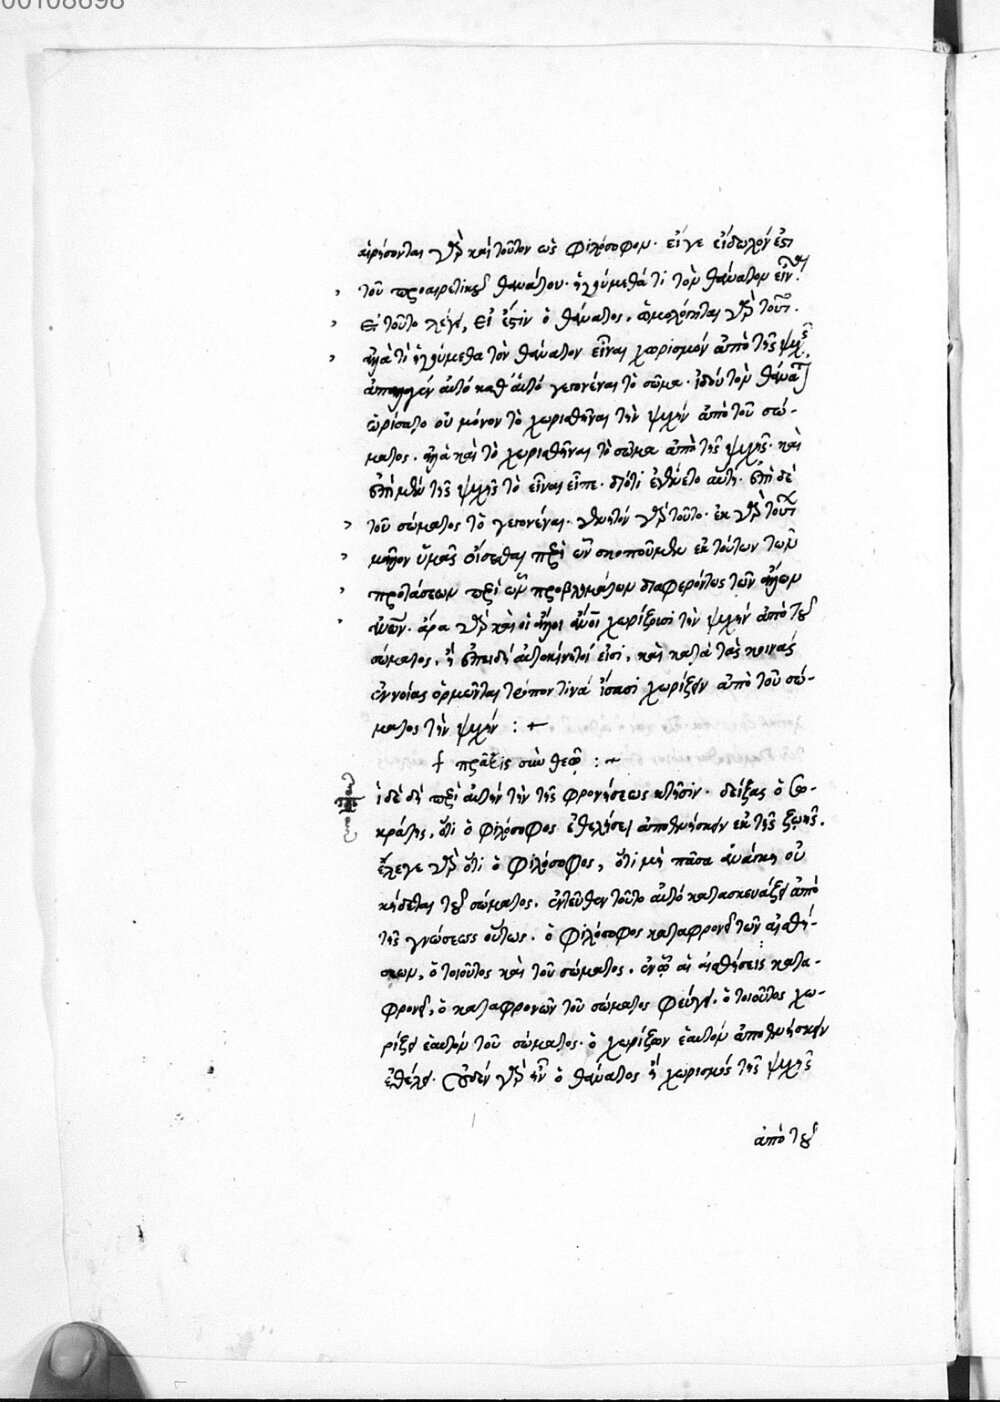 00108698
αἱρήσονται γὰρ καὶ τοῦτον ὡς φιλόσοφον. εἴγε εἴδωλόν ἐστι
τοῦ προαιρετικοῦ θανάτου. ἡγούμεθά τι τὸν θάνατον εἶναι.
εἰ τοῦτο λέγει, εἰ ἔστιν ὁ θάνατος. ὡμολόγηται γὰρ τοῦτο.
ἄλλα τί ἡγούμεθα τὸν θάνατον εἶναι χωρισμὸν ἀπὸ τῆς ψυχῆς.
ἀπαλλαγὲν αὐτὸ καθ' αὑτὸ γεγονέναι τὸ σῶμα. ἰδοὺ τὸν θάνατον
ὡρίσατο οὐ μόνον τὸ χωρισθῆναι τὴν ψυχὴν ἀπὸ τοῦ σώ-
ματος. ἀλλὰ καὶ τὸ χωρισθῆναι τὸ σῶμα ἀπὸ τῆς ψυχῆς. καὶ
ἐπὶ μὲν τῆς ψυχῆς τὸ εἶναι εἶπε. διότι αὕτη. ἐπὶ δὲ
τοῦ σώματος τὸ γεγονέναι. γὰρ τοῦτο. ἐκ γὰρ τούτων
μᾶλλον ἡμᾶς εἴσεσθαι περὶ ὧν σκοποῦμεν ἐκ τούτων τῶν
προτάσεων περὶ ὧν προβλημάτων διαφερόντως τῶν ἄλλων
ἀνθρώπων. ἆρα γὰρ καὶ οἱ ἄλλοι ἄνθρωποι χωρίζουσι τὴν ψυχὴν ἀπὸ τοῦ
σώματος. ἢ ἐπειδὴ αὐτοκίνητοί εἰσι, καὶ κατὰ τὰς κοινὰς
ἐννοίας ὁρμῶνται τρόπον τινὰ ἴσασι χωρίζειν ἀπὸ τοῦ σώ-
ματος τὴν ψυχήν : ~
† πρᾶξις σὺν θεῷ : ~
ἰδὲ δὴ περὶ αὐτὴν τὴν τῆς φρονήσεως κτῆσιν. δείξας ὁ Σω-
κράτης, ὅτι ὁ φιλόσοφος ἐθελήσει ἀποθνήσκειν ἐκ τῆς ζωῆς.
ἔλεγε γὰρ ὅτι ὁ φιλόσοφος, ὅτι μὴ πᾶσα ἀνάγκη οὐ
κήδεται τοῦ σώματος. ἐντεῦθεν τοῦτο αὐτὸ κατασκευάζει ἀπὸ
τῆς γνώσεως οὕτως. ὁ φιλόσοφος καταφρονεῖ τῶν αἰσθή-
σεων, ὁ τοιοῦτος καὶ τοῦ σώματος. ἐν ᾧ αἱ αἰσθήσεις κατα-
φρονεῖ, ὁ καταφρονῶν τοῦ σώματος φεύγει. ὁ τοιοῦτος χω-
ρίζει ἑαυτὸν τοῦ σώματος. ὁ χωρίζων ἑαυτὸν ἀποθνήσκειν
ἐθέλει. οὐδὲν γὰρ ἦν ὁ θάνατος ἢ χωρισμὸς τῆς ψυχῆς
ἀπὸ τοῦ